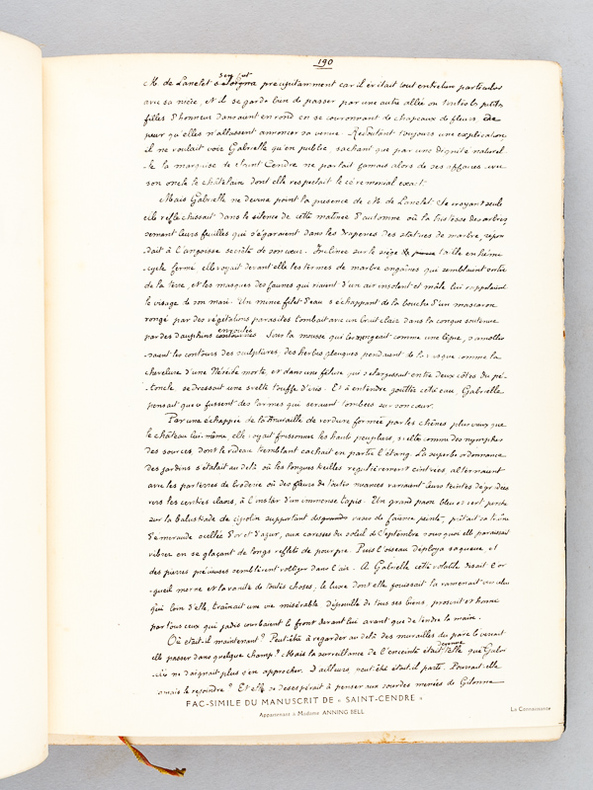 190
M. de Lanclot s'en fut précipitamment car il évitait tout entretien particulier
avec sa nièce, et il se garda bien de passer par une autre allée où toutes les petites
filles d'honneur dansaient en rond en se couronnant de chapeaux de fleurs, de
peur qu'elles n'allassent annoncer sa venue. Redoutant toujours une explication
il ne voulait voir Gabrielle qu'en public, sachant que par une dignité naturel
le la marquise de Saint Cendre ne parlait jamais alors de ses affaires avec
son oncle le châtelain dont elle respectait le cérémonial exact.
Mais Gabrielle ne devina point la présence de M. de Lanclot. Se croyant seule
elle réfléchissait dans le silence de cette matinée d'automne où la tristesse des arbres
semant leurs feuilles qui s'égaraient dans les draperies des statues de marbre, répon
dait à l'angoisse secrète de son cœur. Inclinée sur le siège taillé en hémi
cycle fermé, elle voyait devant elle les termes de marbre engainés qui semblaient sortir
de la terre, et les masques des faunes qui riaient d'un air insolent et mâle lui rappelaient
le visage de son mari. Un mince filet d'eau s'échappant de la bouche d'un mascaron
rongé par des végétations parasites tombait avec un bruit clair dans la conque soutenue
par des dauphins enroulés. Sous la mousse qui les rongeait comme une lèpre, s'amollis
saient les contours des sculptures, des herbes glauques pendaient de la vasque comme la
chevelure d'une Néréide morte, et dans une fêlure qui s'élargissait entre deux côtes du pé
toncle se dressait une svelte touffe d'iris. Et à entendre goutter cette eau, Gabrielle
pensait que ce fussent des larmes qui seraient tombées sur son cœur.
Par une échappée de la muraille de verdure formée par les chênes plus vieux que
le château lui-même elle voyait frissonner les hauts peupliers, sveltes comme des nymphes
des sources, dont le rideau tremblant cachait en partie l'étang. La superbe ordonnance
des jardins s'étalait au delà où les longues treilles régulièrement cintrées alternaient
avec les parterres de broderie où des fleurs de toutes nuances variaient leurs teintes dégradées
vers les centres clairs, à l'instar d'un immense tapis. Un grand paon bleu et vert perché
sur la balustrade de cipolin supportant des vases de faïence peinte, prêtait sa traîne
d'émeraude ocellée d'or et d'azur, aux caresses du soleil de Septembre sous quoi elle paraissait
vibrer en se glaçant de longs reflets de pourpre. Puis l'oiseau déploya sa queue et
des pierres précieuses semblèrent voltiger dans l'air. A Gabrielle cette volatile disait l'or
gueil morne et la vanité de toutes choses, le luxe dont elle jouissait la ramenait au
qui loin d'elle, traînait une vie misérable dépouillé de tous ses biens proscrit et honni
par tous ceux qui jadis courbaient le front devant lui avant que de tendre la main.
Où était-il maintenant? Peut-être à regarder au delà des murailles du parc le verrait
elle passer dans quelque champ? Mais la surveillance de l'enceinte était devenue telle que Gabri
elle ne daignait plus s'en approcher. D'ailleurs, peut-être était-il parti. Pourrait-elle
jamais le rejoindre? Et elle se désespérait à penser aux sourdes menées de Gilonne
FAC-SIMILE DU MANUSCRIT DE « SAINT-CENDRE »
Appartenant à Madame ANNING BELL
La Connaissance